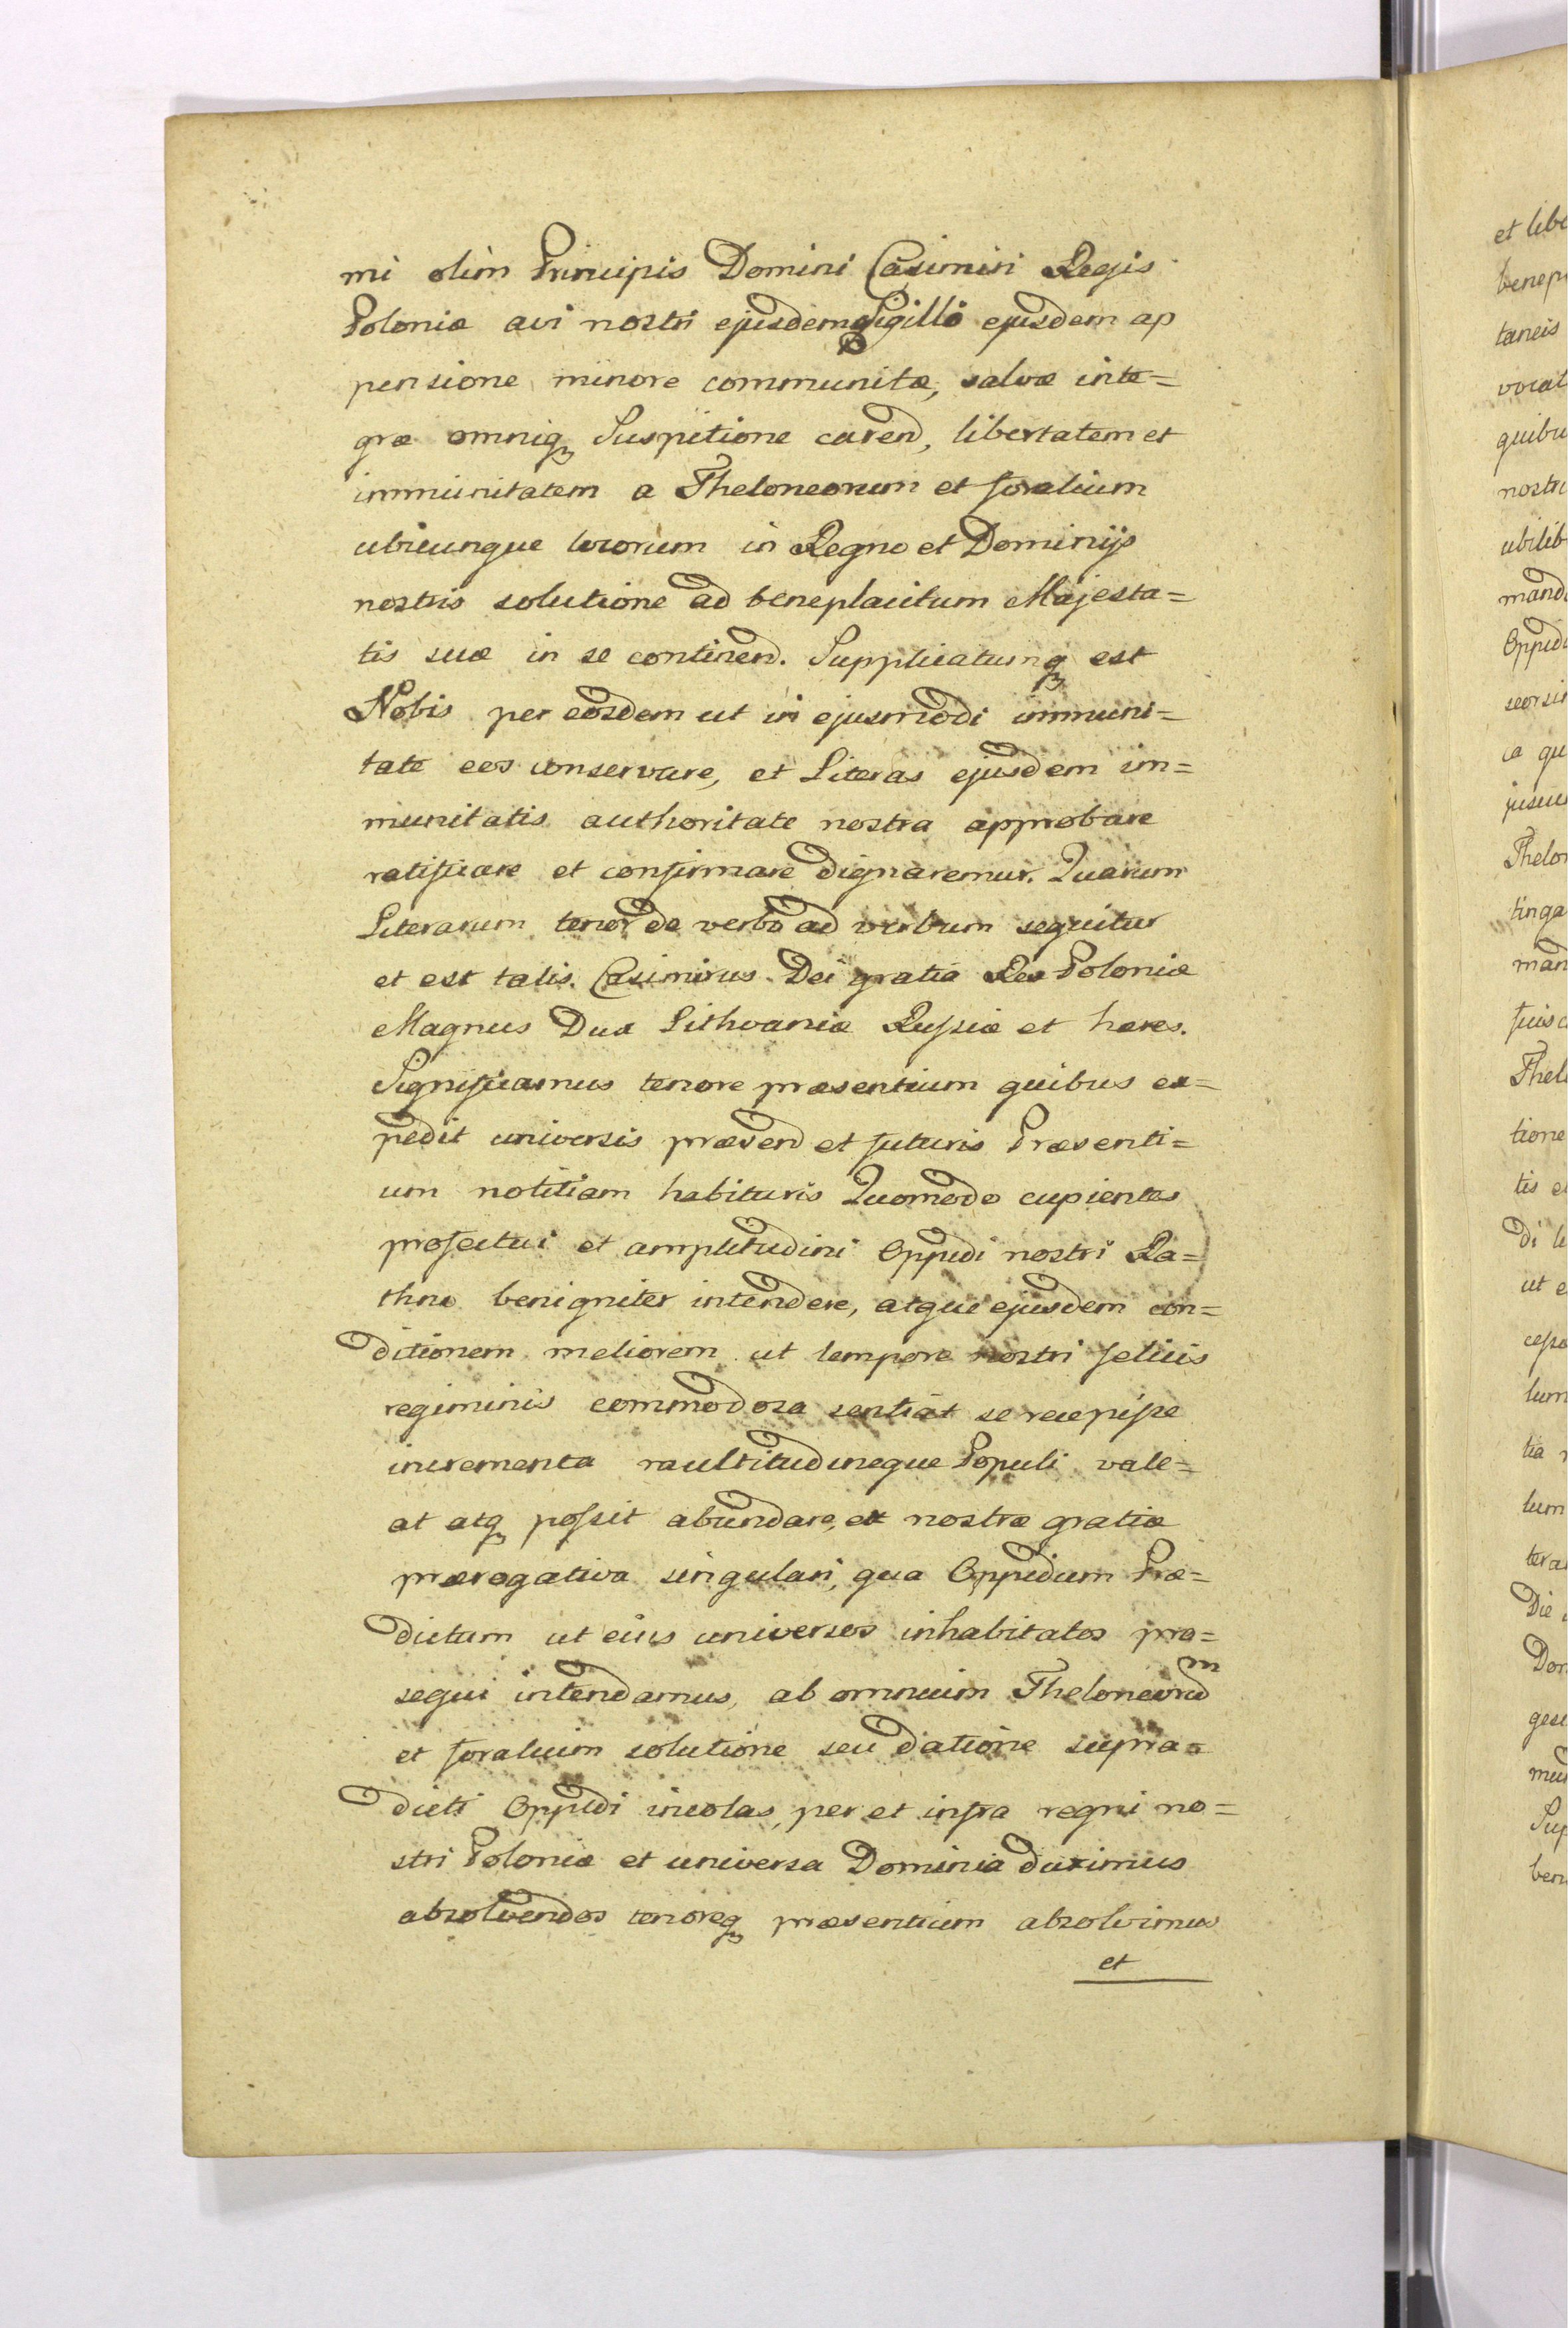 mi olim Principis Domini Casimiri Regis
Poloniæ avi nostri ejusdemq Sigillo ejusdem ap
pensione minore communitæ, salvæ inte=
græ omniq Suspitione carend, libertatem et
immunitatem a Theloneorum et foralium
ubicunque locorum in Regno et Dominijs
nostris solutione ad beneplacitum Majesta=
tis suæ in se continend. Supplicatumq est
Nobis per eosdem ut in ejusmodi immuni=
tate eos conservare, et Literas ejusdem im=
munitatis authoritate nostra approbare
ratificare et confirmare dignaremur. Quarum
Literarum tenor de verbo ad verbum sequitur
et est talis. Casimirus Dei gratia Rex Poloniæ
Magnus Dux Lithvaniæ Russiæ et hæres.
Significamus tenore præsentium quibus ex=
pedit universis præsend et futuris Præsenti=
um notitiam habituris Quomodo cupientes
profectui et amplitudini Oppidi nostri Ra=
thno benigniter intendere, atque ejusdem con=
ditionem meliorem ut tempore nostri felicis
regiminis commodosa sentiat se recepisse
incrementa multitudineque Populi vale=
at atq possit abundare, ex nostræ gratiæ
prærogativa singulari, qua Oppidum Præ=
dictum ut eius universos inhabitatos pro=
sequi intendamus, ab omnium Theloneorum
et foralium solutione seu datione supra=
dicti Oppidi incolas, per et infra regni no=
stri Poloniæ et universa Dominia duximus
absolvendos tenoreq præsentium absolvimus
et
et libe
benep
taneis
vocat
quibu
nostri
ubilib
mand
Oppid
seorsi
a qu
Thelo
tinga
man
Thel
tione
tis e
di l
ut e
lum
tia
lum
tera
Die
Don
gesi
Sup
ben